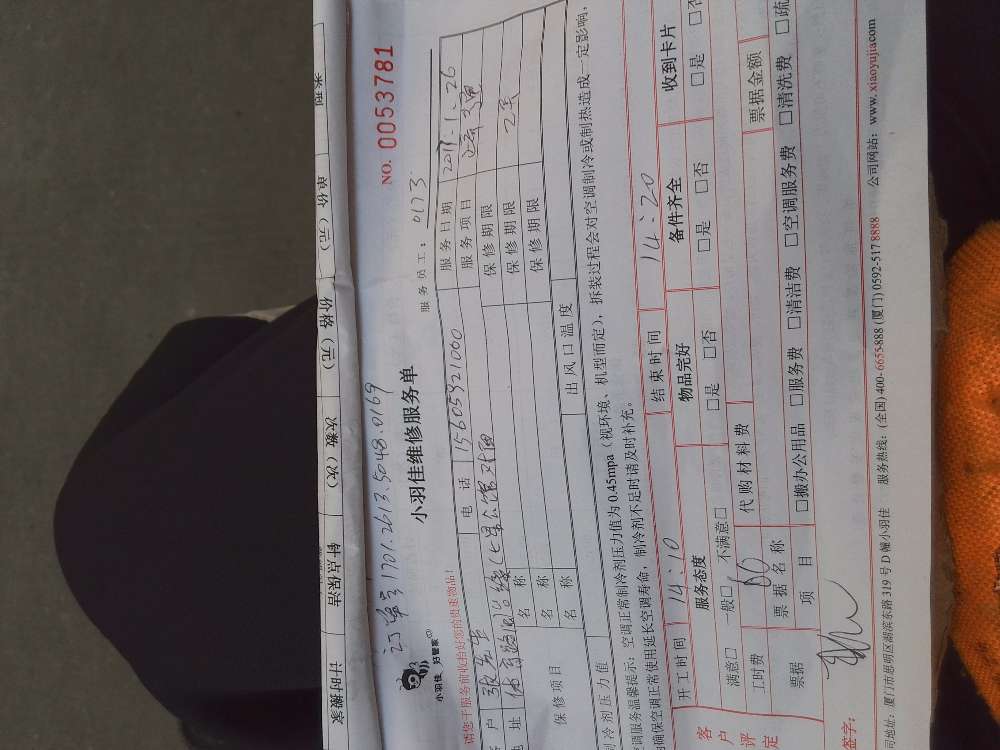 计时搬家 钟点保洁 次数（次） 价格（元） 单价（元） 类型
订单号1701.2613.5048.0169
小羽佳 好管家
小羽佳维修服务单
NO. 0053781
服务员工： 0173
请您于服务前收拾好您的贵重物品！
客户 电话 15605921060 服务日期 2017.1.26
地址 服务项目
保修项目 名称 保修期限
名称 保修期限
名称 保修期限
制冷剂压力值 出风口温度
空调服务温馨提示：空调正常制冷剂压力值为0.45mpa（视环境、机型而定），拆装过程会对空调制冷或制热造成一定影响，
确保空调正常使用延长空调寿命，制冷剂不足时请及时补充。
开工时间 14:10 结束时间 14:20
客户评定 服务态度 物品完好 备件齐全 收到卡片
满意□ 一般□ 不满意□ □是 □否 □是 □否 □是 □否
工时费 60 代购材料费
票据 票据名称 票据金额
项目 □搬办公用品 □服务费 □清洁费 □空调服务费 □清洗费 □疏
签字：
司地址：厦门市思明区湖滨东路319号D幢小羽佳 服务热线：(全国) 400-6655-888 (厦门) 0592-517 8888 公司网站：www.xiaoyujia.com